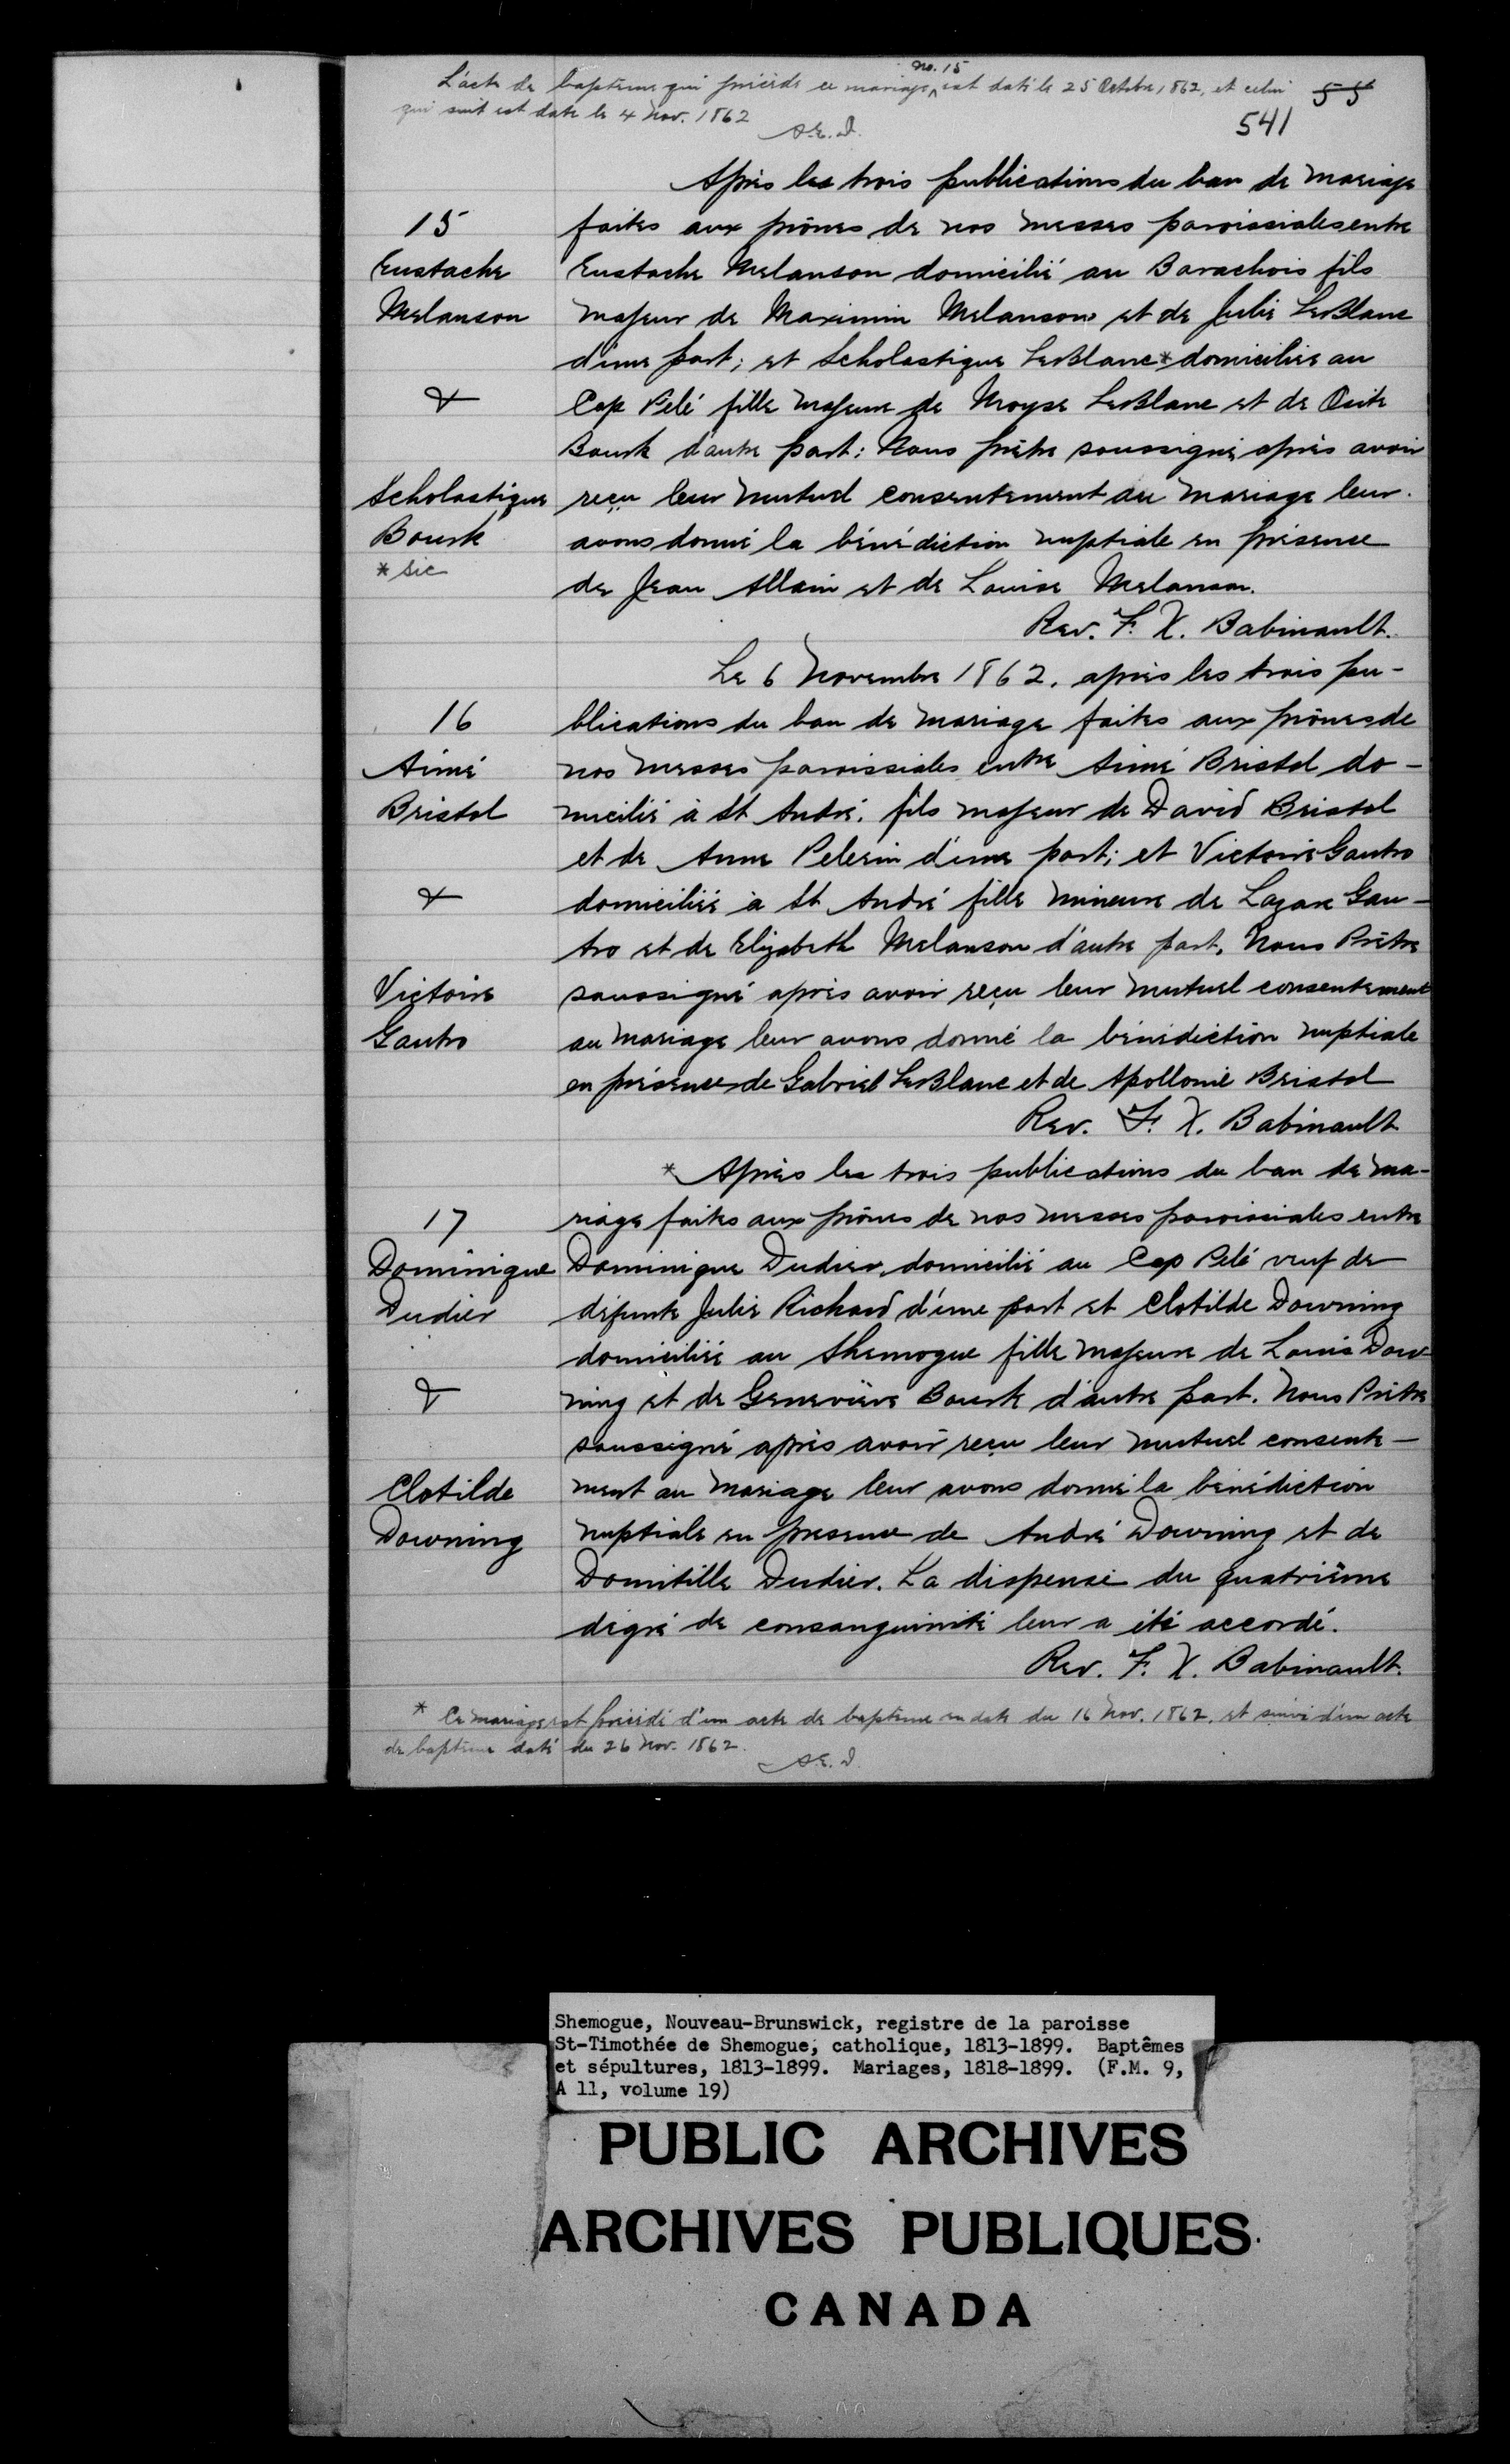 L'acte de baptême qui précède ce mariage no. 15 est daté le 25 Octobre, 1862, et celui
qui suit est daté le 4 Nov. 1862
A.E.D.
55
541
Après les trois publications du ban de mariage
15 faites aux prônes de nos messes paroissiales entre
Eustache Eustache Melanson domicilié au Barachois fils
Melanson majeur de Maximin Melanson et de Julie LeBlanc
d'une part; et Scholastique LeBlanc* domiciliée au
& Cap Pelé fille majeure de Moyse LeBlanc et de Osite
Bourk d'autre part: Nous prêtre soussigné, après avoir
Scholastique reçu leur mutuel consentement au mariage leur
Bourk avons donné la bénédiction nuptiale en présence
* sic
de Jean Allain et de Louise Melanson.
Rev. F. X. Babinault.
Le 6 Novembre 1862, après les trois pu-
16 blications du ban de mariage faites aux prônes de
Aimé nos messes paroissiales entre Aimé Bristol do-
Bristol micilié à St André, fils majeur de David Bristol
et de Anne Pelerin d'une part; et Victoire Gautro
& domiciliée à St André fille mineure de Lazare Gau-
tro et de Elizabeth Melanson d'autre part, Nous Prêtre
Victoire soussigné après avoir reçu leur mutuel consentement
Gautro au mariage leur avons donné la bénédiction nuptiale
en présence de Gabriel LeBlanc et de Apollonie Bristol
Rev. F. X. Babinault
* Après les trois publications du ban de ma-
17 riage faites aux prônes de nos messes paroissiales entre
Dominique Dominique Dudier, domicilié au Cap Pelé veuf de
Dudier défunte Julie Richard d'une part et Clotilde Downing
domiciliée au Shemogue fille majeure de Louis Dow-
& ning et de Geneviève Bourk d'autre part. Nous Prêtre
soussigné après avoir reçu leur mutuel consente-
Clotilde ment au mariage leur avons donné la bénédiction
Downing nuptiale en presence de André Downing et de
Domitille Dudier. La dispense du quatrième
dégré de consanguinité leur a été accordé.
Rev. F. X. Babinault.
* Ce mariage est précédé d'un acte de baptême en date du 16 Nov. 1862, et suivi d'un acte
de baptême daté du 26 Nov. 1862.
A.E.D.
Shemogue, Nouveau-Brunswick, registre de la paroisse
St-Timothée de Shemogue, catholique, 1813-1899. Baptêmes
et sépultures, 1813-1899. Mariages, 1818-1899. (F.M. 9,
A 11, volume 19)
PUBLIC ARCHIVES
ARCHIVES PUBLIQUES
CANADA